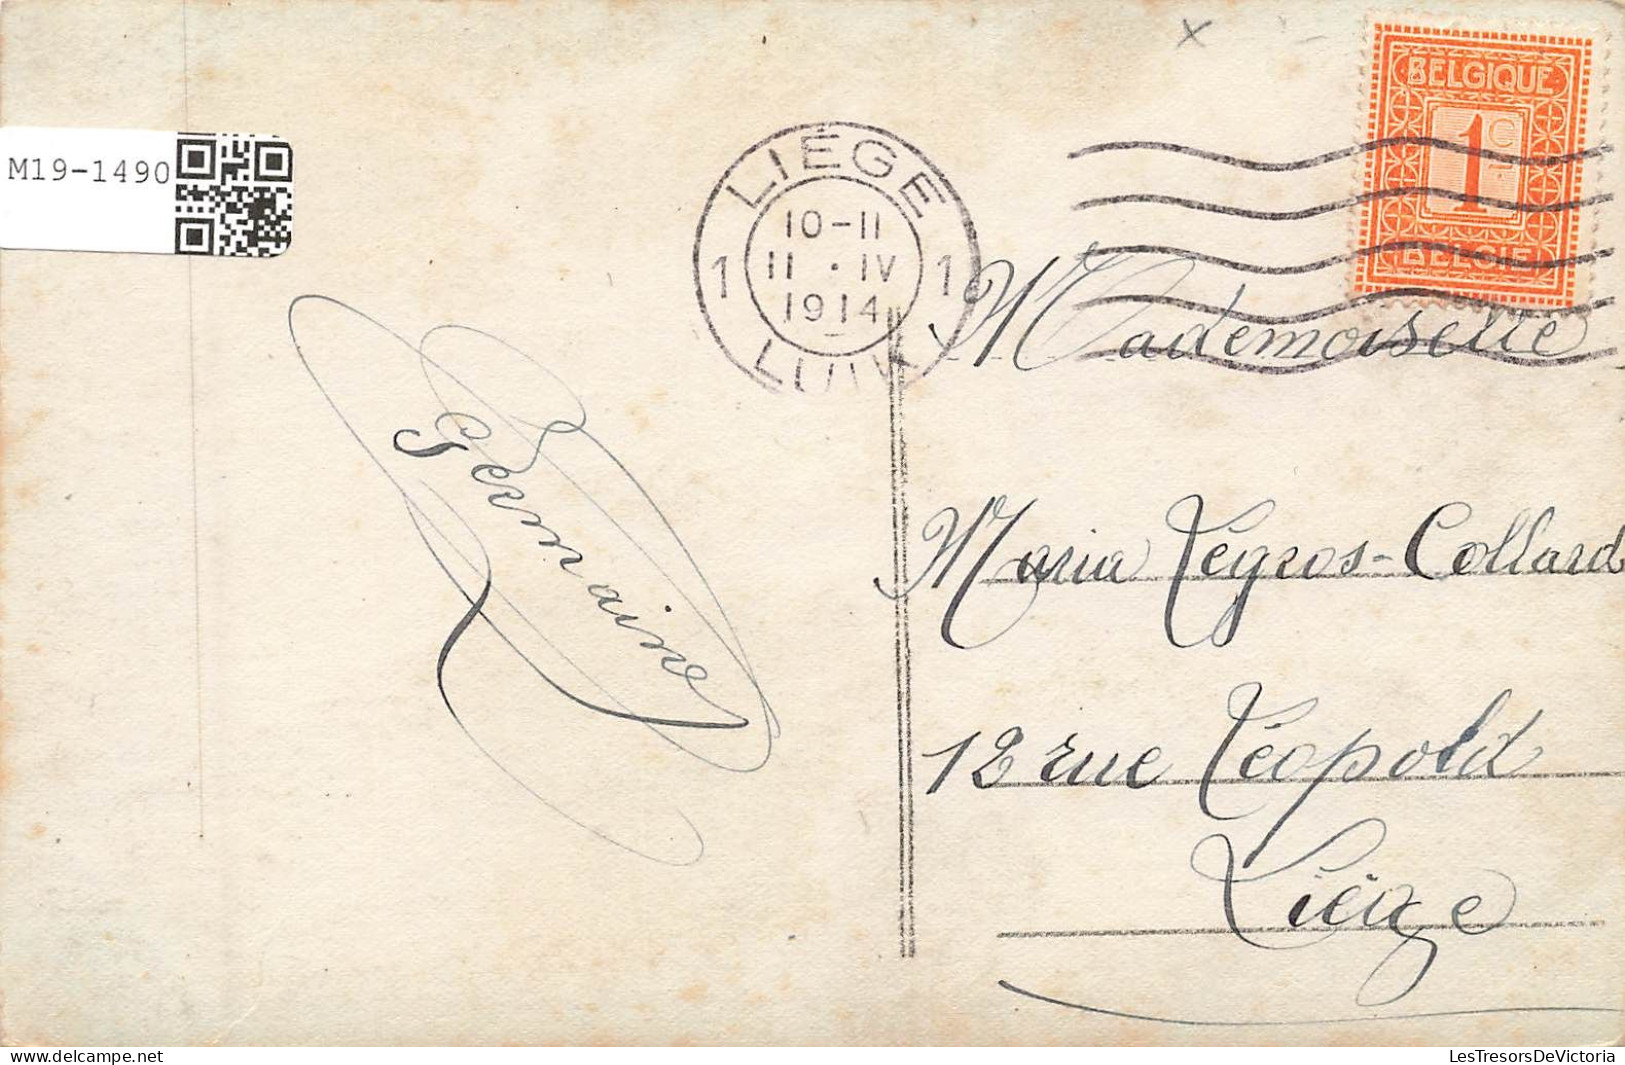 M19-1490
LIÉGE
10-11
11 · IV
1914
1 1
LUIK
BELGIQUE
1 C
BELGIË
Mademoiselle
Maria Légros-Collard
12 rue Léopold
Liége
Germaine
delcampe.net
LesTresorsDeVictoria